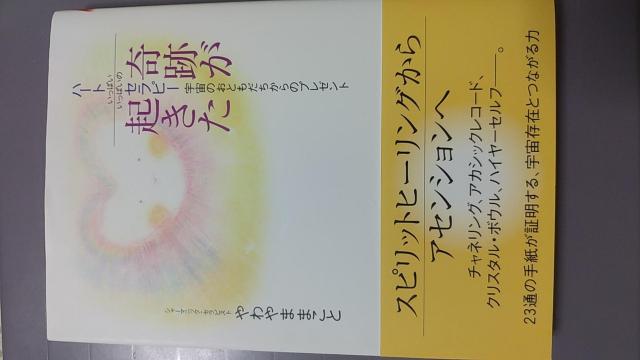 いっぱい
いっぱいの
奇跡が
起きた
ハートセラピー
宇宙のおともだちからのプレゼント
シャーマニック・セラピスト
やわやままこと
スピリットヒーリングから
アセンションへ
チャネリング、アカシックレコード、
クリスタル・ボウル、ハイヤーセルフ——。
23通の手紙が証明する、宇宙存在とつながる力